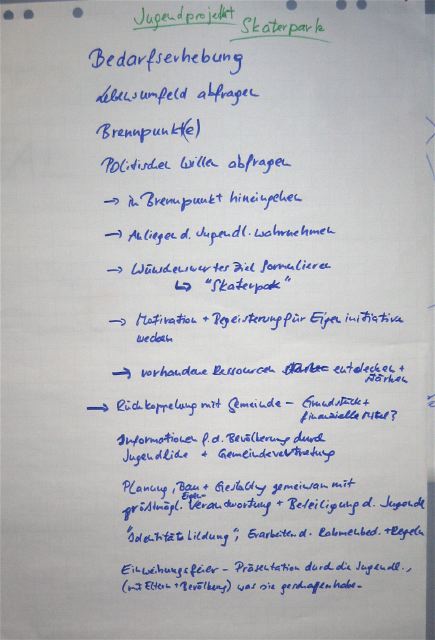 Jugendprojekt
Skaterpark
Bedarfserhebung
Lebensumfeld abfragen
Brennpunkt(e)
Politischen Willen abfragen
→ in Brennpunkt hineingehen
→ Anliegen d. Jugendl. wahrnehmen
→ Wünschenswertes Ziel formulieren
↳ "Skaterpark"
→ Motivation + Begeisterung für Eigeninitiative
wecken
→ vorhandene Ressourcen entdecken +
stärken
→ Rückkoppelung mit Gemeinde – Grundstück +
finanzielle Mittel?
Informationen f. d. Bevölkerung durch
Jugendliche + Gemeindevertretung
Planung, Bau + Gestaltg gemeinsam mit
größtmögl. Eigen-Verantwortung + Beteiligung d. Jugendl
"Identitätsbildung", Erarbeiten d. Rahmenbed. + Regeln
Einweihungsfeier – Präsentation durch die Jugendl.,
(mit Eltern + Bevölkerg) was sie geschaffen haben.